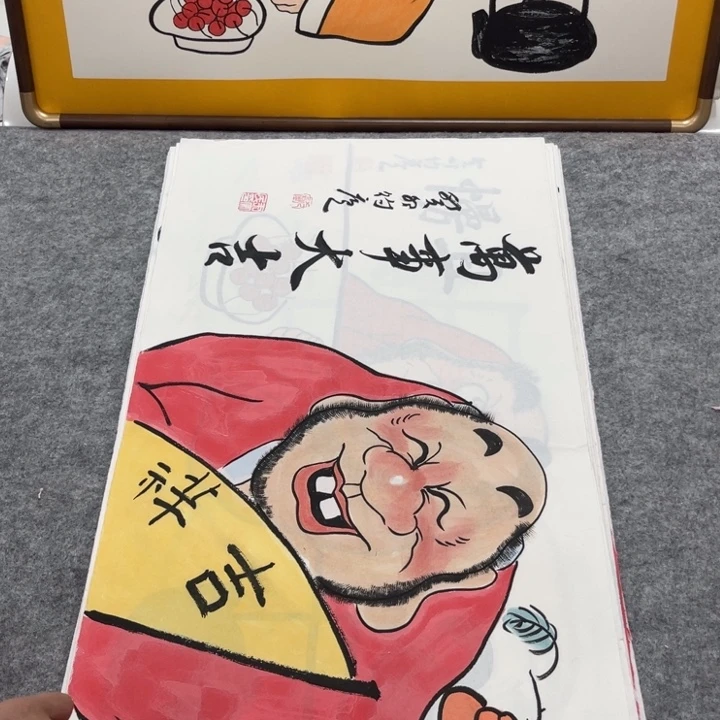 萬事大吉
吉祥